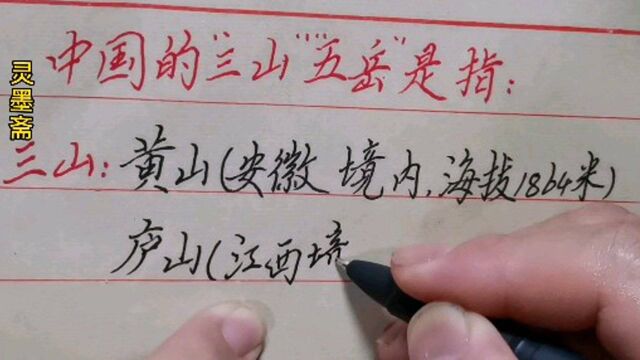 灵墨斋
中国的"三山""五岳"是指:
三山:黄山(安徽境内,海拔1864米)
庐山(江西境